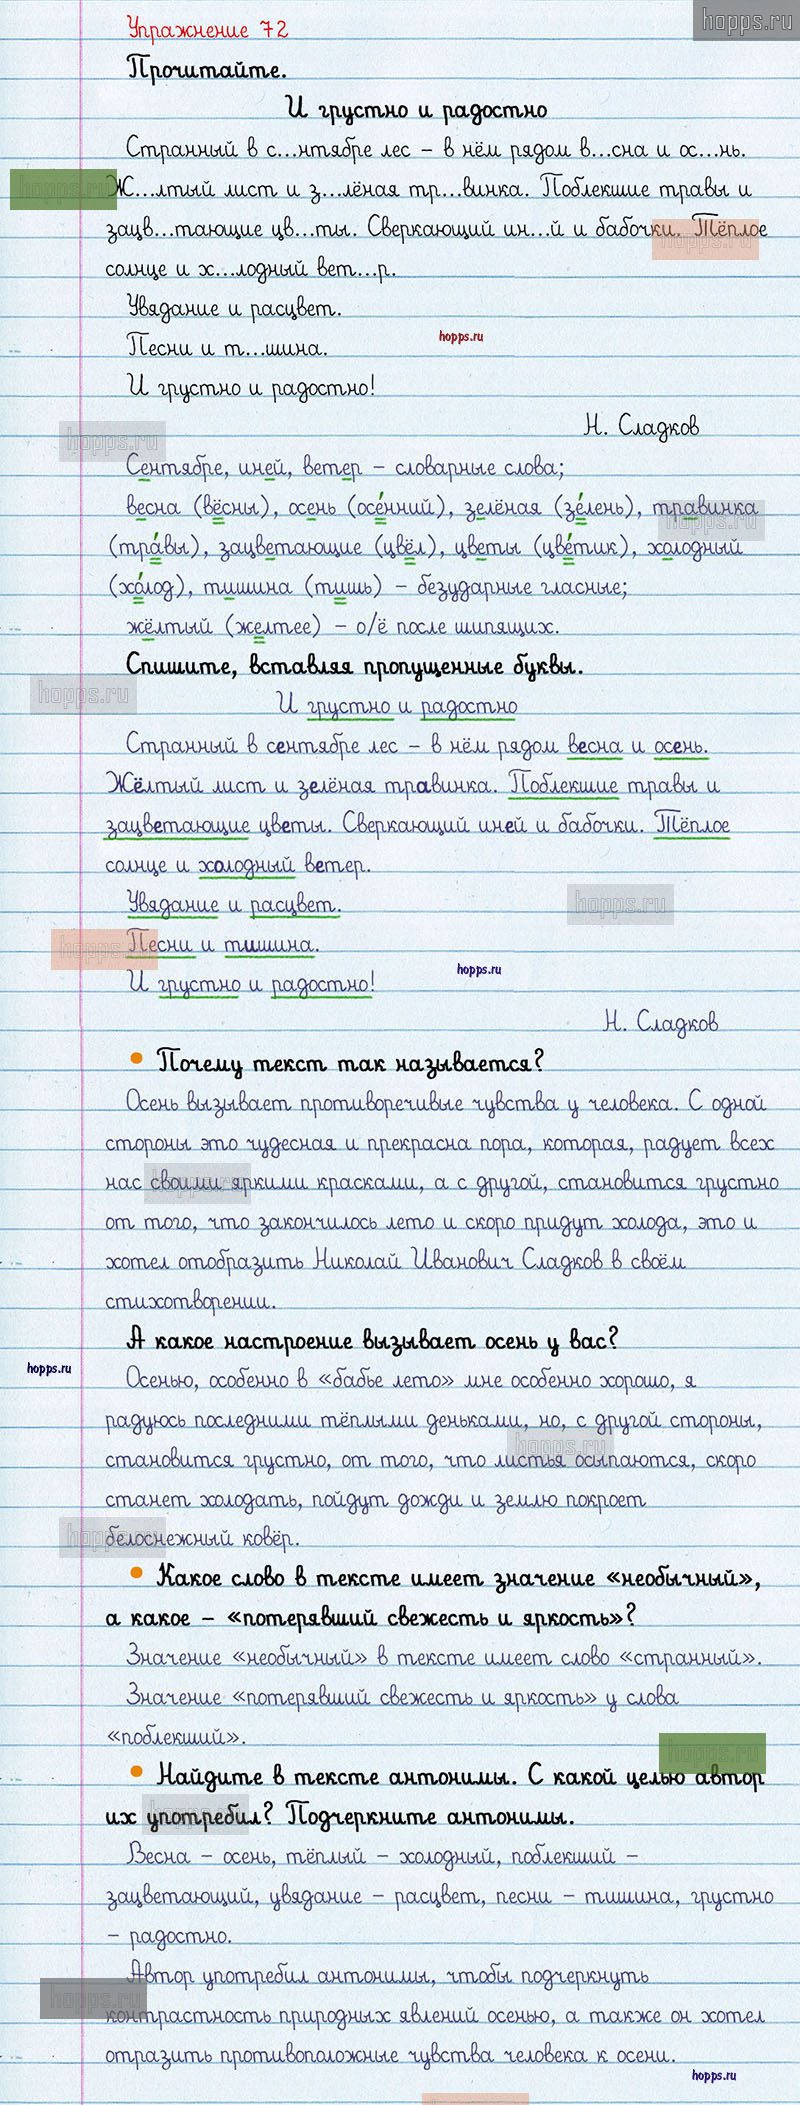 hopps.ru
Упражнение 72
Прочитайте.
И грустно и радостно
Странный в с...нтябре лес – в нём рядом в...сна и ос...нь.
hopps.ru
Ж...лтый лист и з...лёная тр...винка. Поблекшие травы и
зацв...тающие цв...ты. Сверкающий ин...й и бабочки. Тёплое
hopps.ru
солнце и х...лодный вет...р.
Увядание и расцвет.
hopps.ru
Песни и т...шина.
И грустно и радостно!
Н. Сладков
hopps.ru
Сентябре, иней, ветер – словарные слова;
весна (вёсны), осень (осе́нний), зелёная (зе́лень), травинка
hopps.ru
(тра́вы), зацветающие (цвёл), цветы (цве́тик), холодный
(хо́лод), тишина (тишь) – безударные гласные;
жёлтый (желтее) – о/ё после шипящих.
Спишите, вставляя пропущенные буквы.
hopps.ru
И грустно и радостно
Странный в сентябре лес – в нём рядом весна и осень.
Жёлтый лист и зелёная травинка. Поблекшие травы и
зацветающие цветы. Сверкающий иней и бабочки. Тёплое
солнце и холодный ветер.
Увядание и расцвет.
hopps.ru
Песни и тишина.
hopps.ru
hopps.ru
И грустно и радостно!
Н. Сладков
• Почему текст так называется?
Осень вызывает противоречивые чувства у человека. С одной
стороны это чудесная и прекрасна пора, которая, радует всех
нас своими яркими красками, а с другой, становится грустно
hopps.ru
от того, что закончилось лето и скоро придут холода, это и
хотел отобразить Николай Иванович Сладков в своём
стихотворении.
А какое настроение вызывает осень у вас?
hopps.ru
Осенью, особенно в «бабье лето» мне особенно хорошо, я
радуюсь последними тёплыми деньками, но, с другой стороны,
hopps.ru
становится грустно, от того, что листья осыпаются, скоро
станет холодать, пойдут дожди и землю покроет
hopps.ru
белоснежный ковёр.
• Какое слово в тексте имеет значение «необычный»,
а какое – «потерявший свежесть и яркость»?
Значение «необычный» в тексте имеет слово «странный».
Значение «потерявший свежесть и яркость» у слова
«поблекший».
hopps.ru
• Найдите в тексте антонимы. С какой целью автор
их употребил? Подчеркните антонимы.
hopps.ru
Весна – осень, тёплый – холодный, поблекший –
зацветающий, увядание – расцвет, песни – тишина, грустно
– радостно.
Автор употребил антонимы, чтобы подчеркнуть
hopps.ru
контрастность природных явлений осенью, а также он хотел
отразить противоположные чувства человека к осени.
hopps.ru